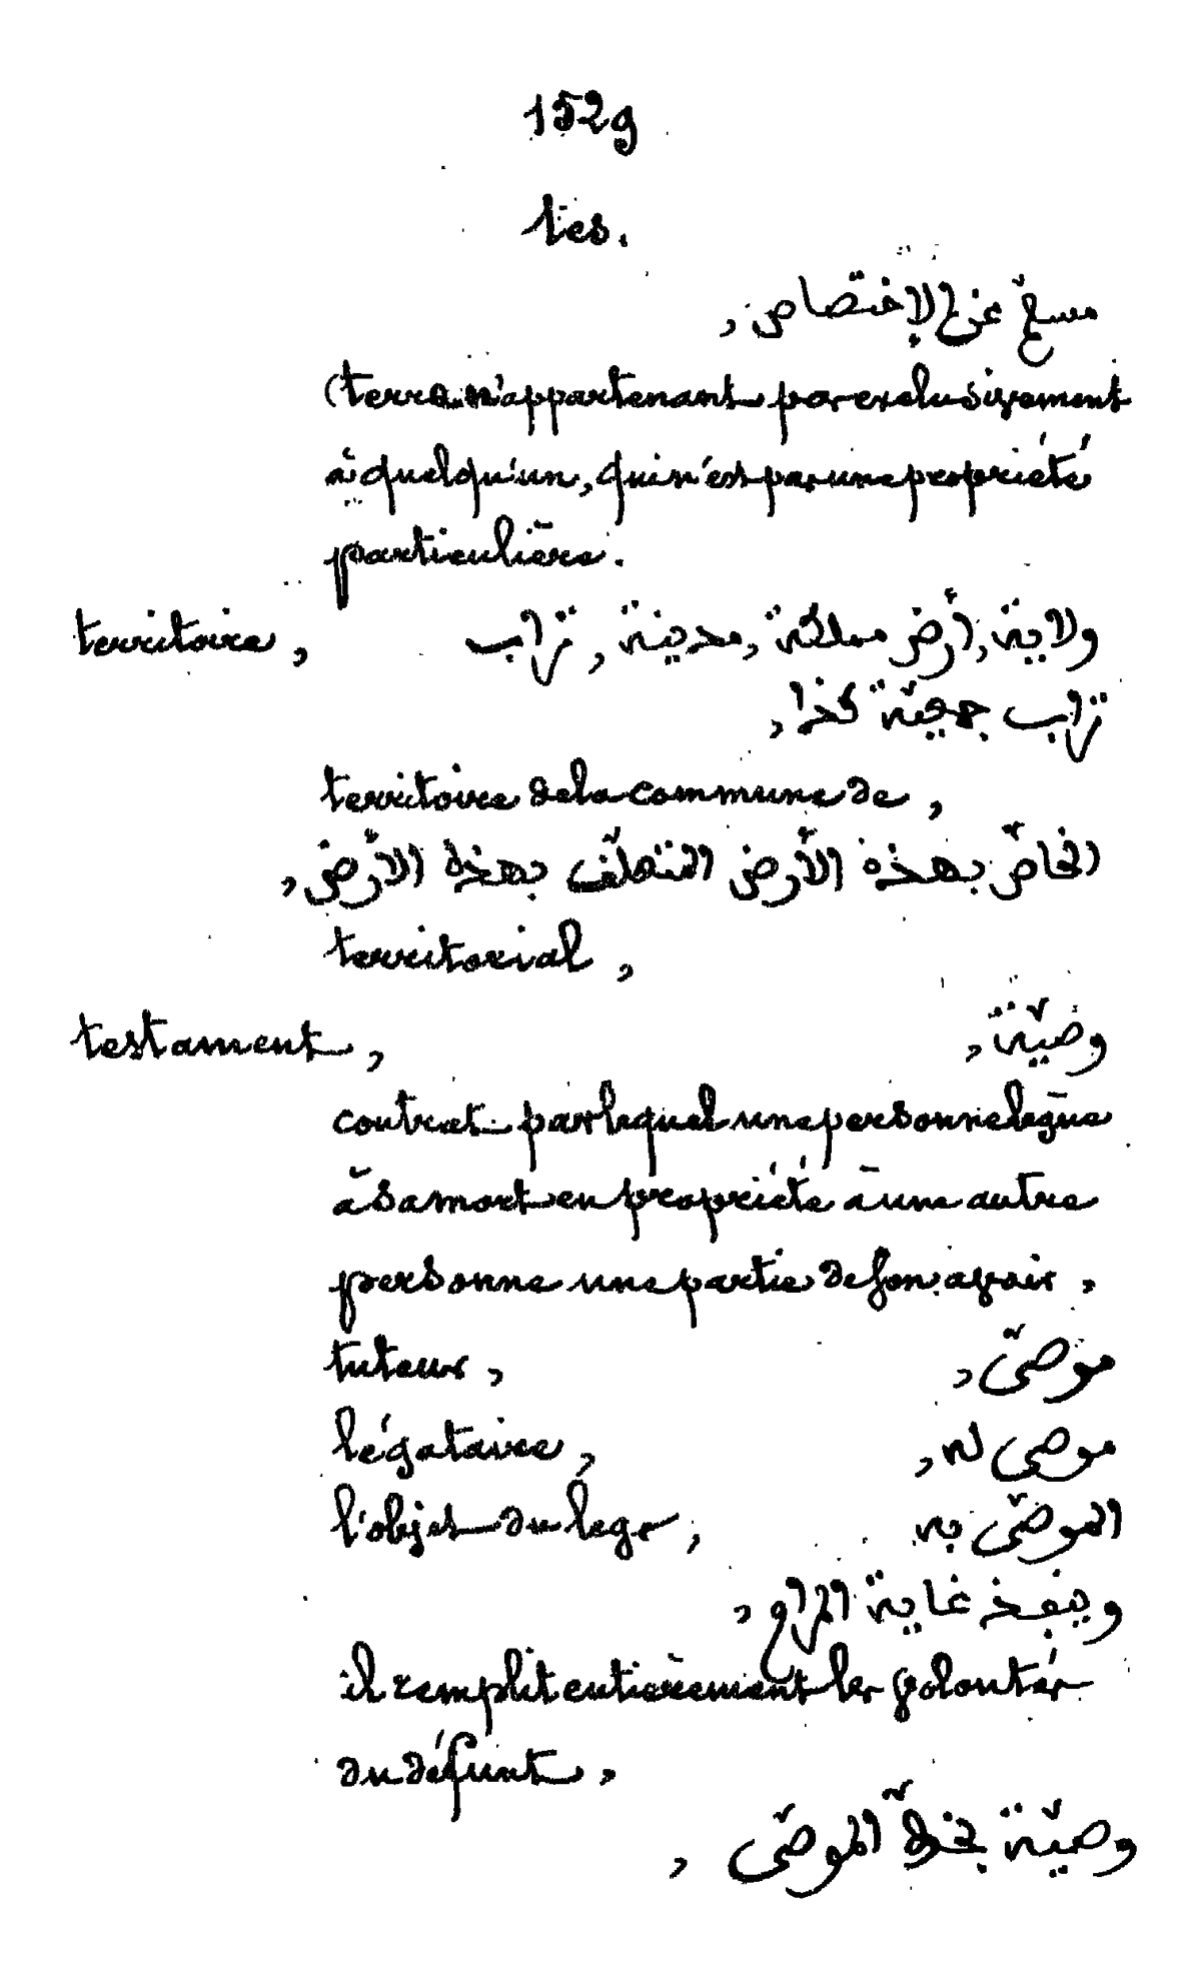 1529
tes.
عن الاختصاص,
(terre n'appartenant pas exclusivement
à quelqu'un, qui n'est pas une propriété
particulière.
territoire, ولاية, أرض مملكة, مدينة, تراب
تراب جمعيّة كذا,
territoire de la commune de,
الخاصّ بهذه الأرض المتعلّق بهذه الأرض,
territorial,
testament, وصيّة,
contrat par lequel une personne lègue
à sa mort en propriété à une autre
personne une partie de son avoir,
tuteur, موصّى,
légataire, موصى له,
l'objet du legs, الموصّى به
وينفذ غاية
il remplit entièrement les volontés
du défunt,
وصيّة بخطّ الموصّى,